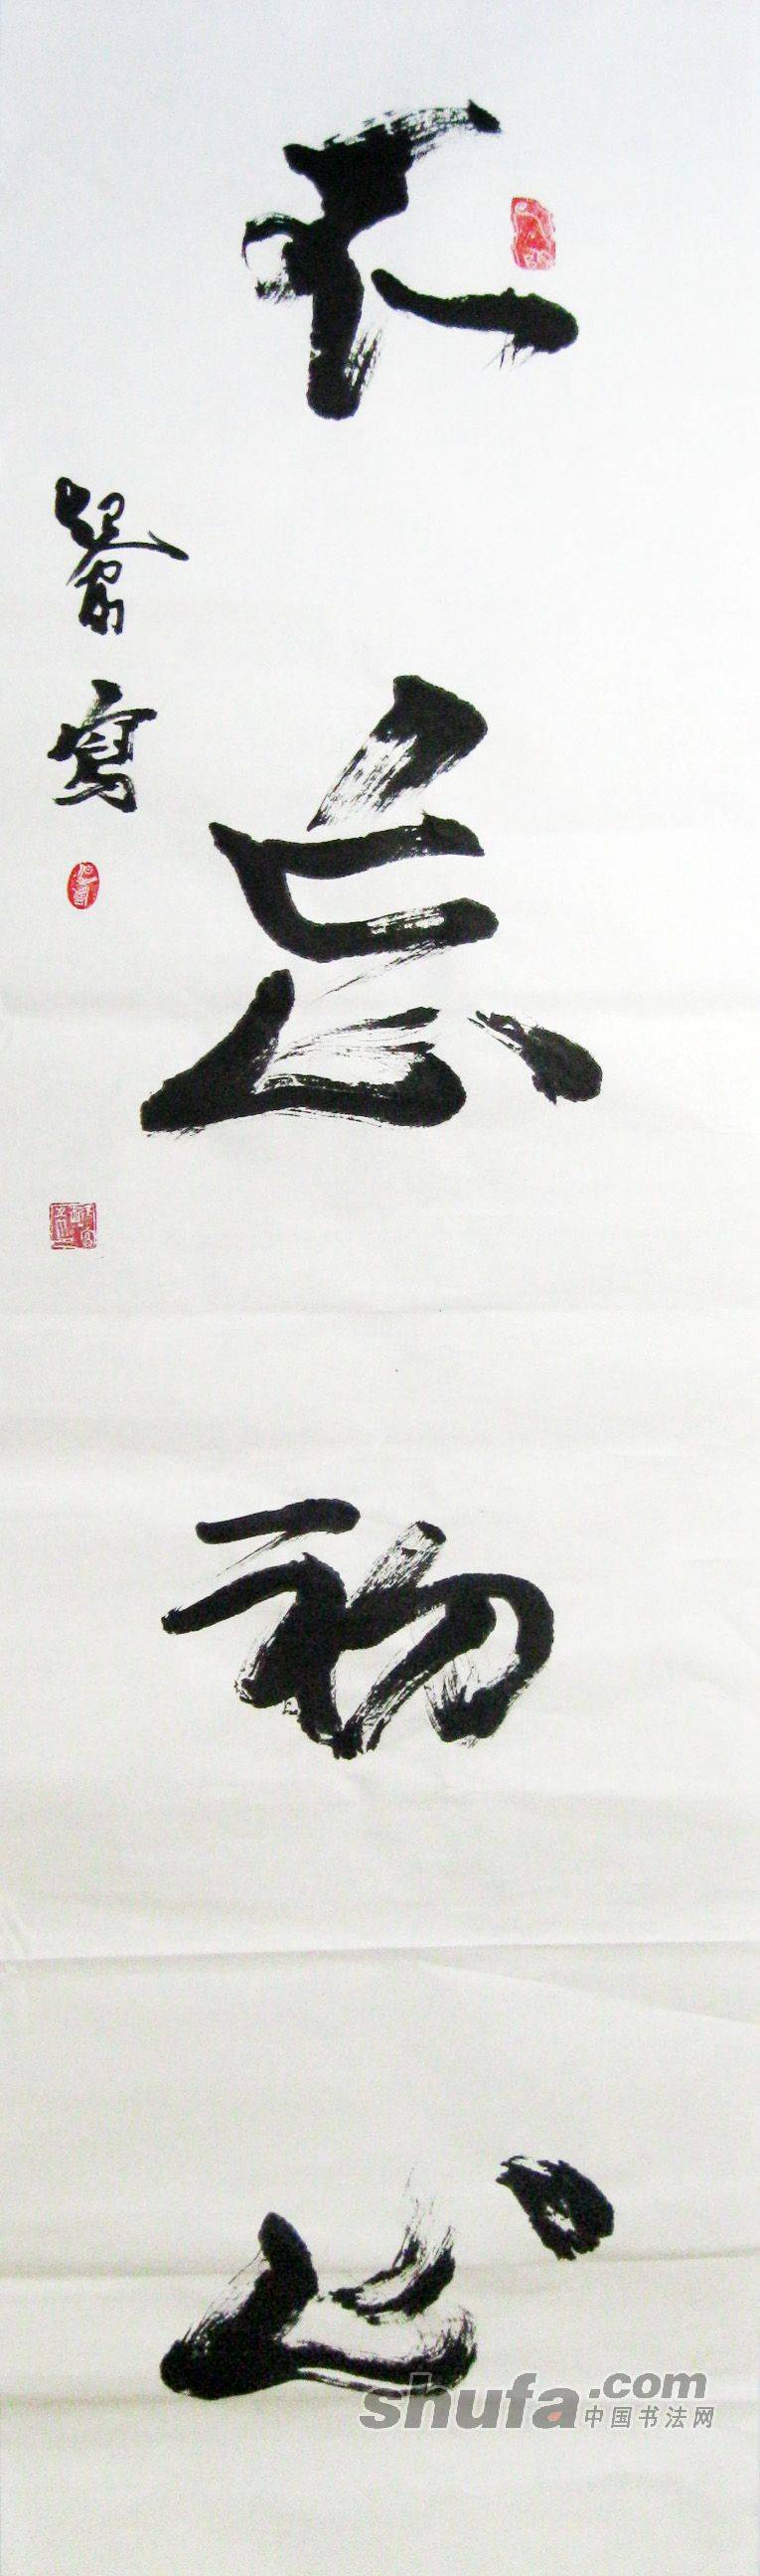 不忘初心
寫
shufa.com
中国书法网